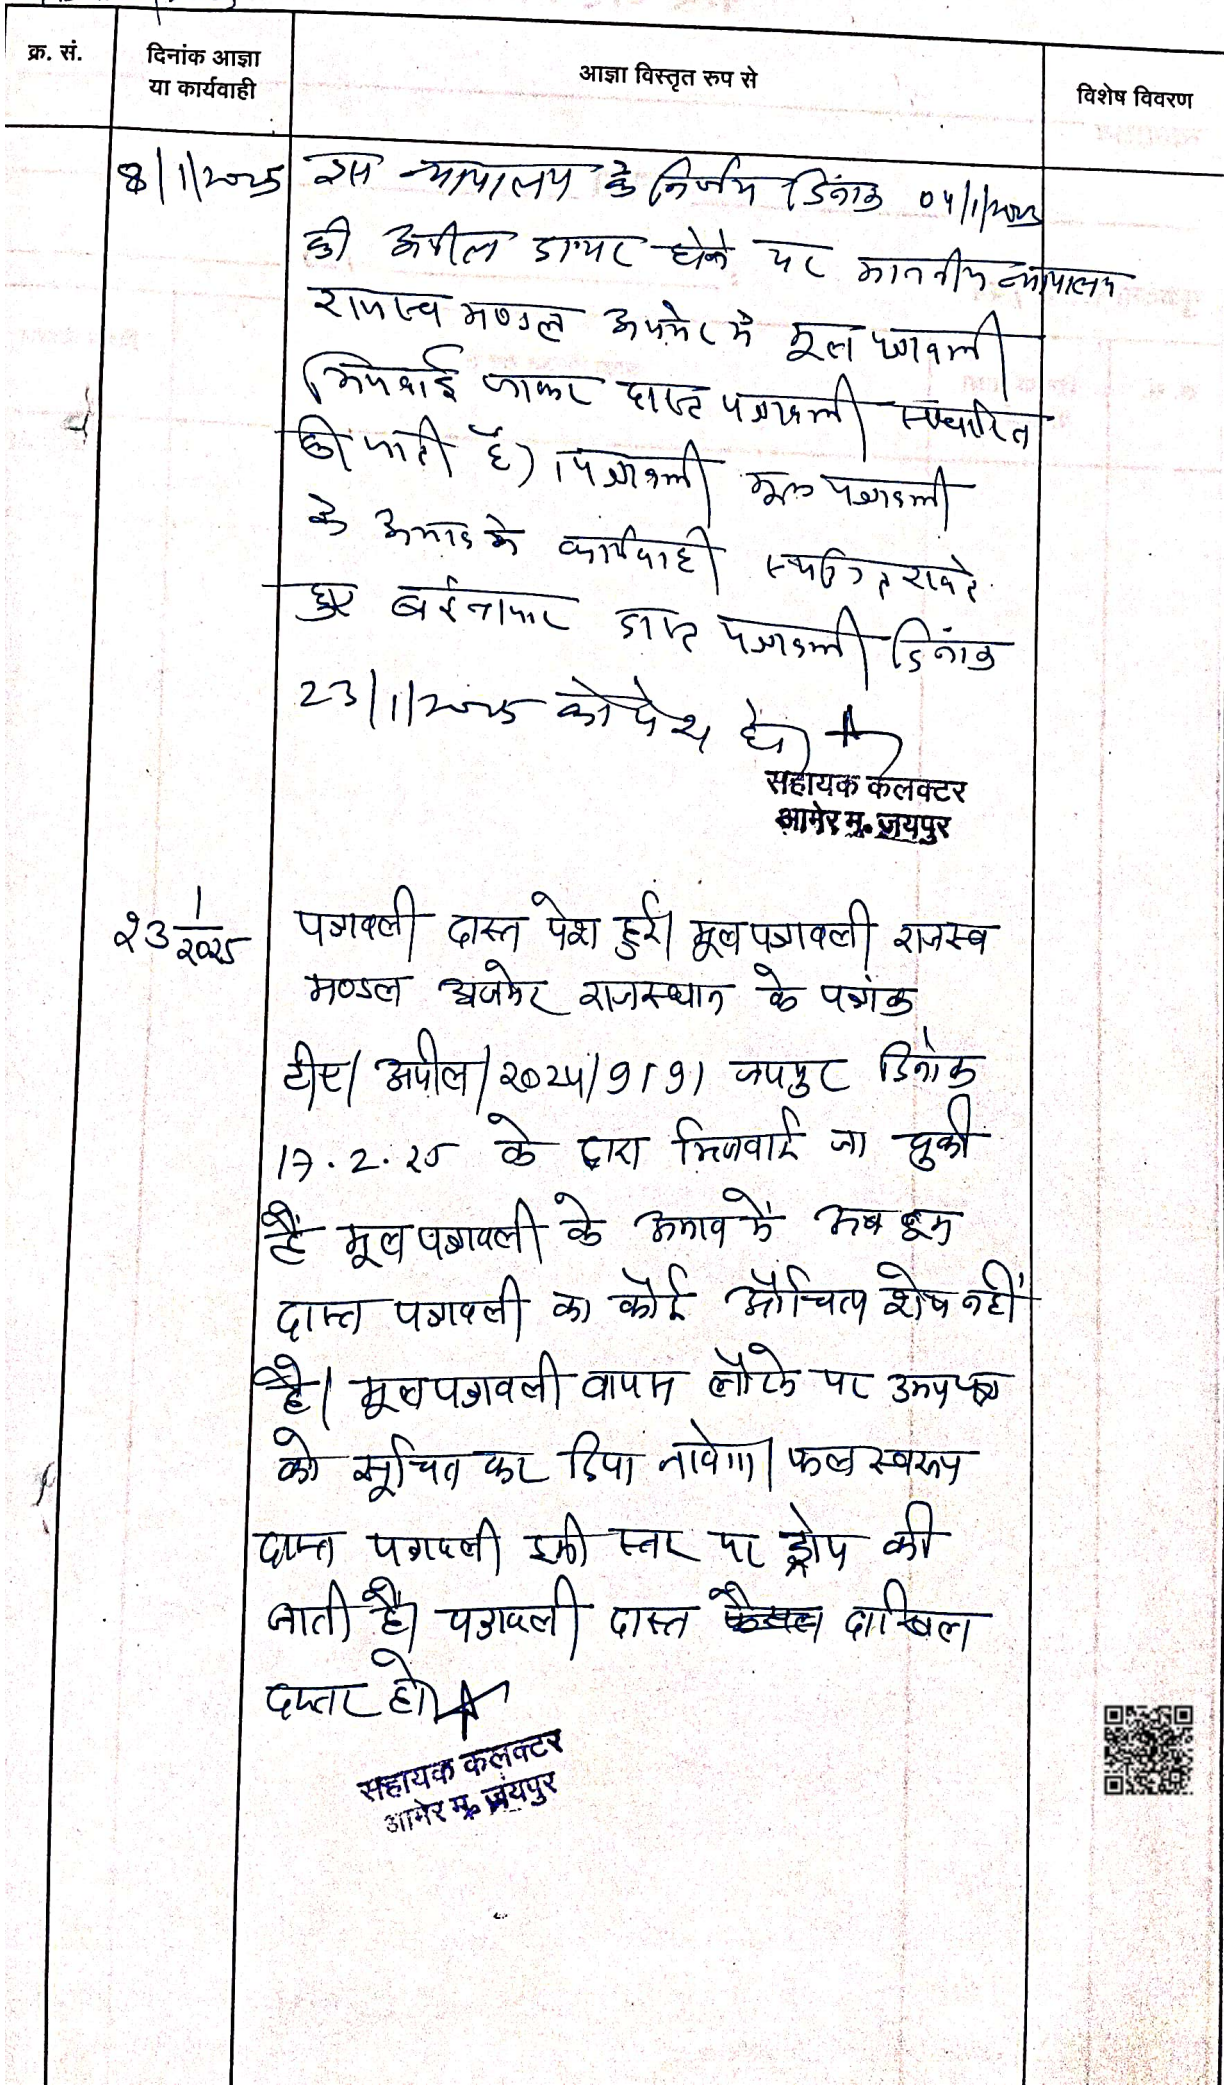 क्र. सं.
दिनांक आज्ञा
या कार्यवाही
आज्ञा विस्तृत रुप से
विशेष विवरण
8/1/2025 इस न्यायालय के निर्णय दिनांक 04/1/2023
की अपील दायर होने पर माननीय न्यायालय
राजस्व मण्डल अजमेर में मूल पत्रावली
भिजवाई जाकर दास्त पत्रावली स्थापित
की जाती है। पत्रावली मूल पत्रावली
के अभाव के कार्यवाही स्थगित रखते
हुए दास्त पत्रावली दिनांक
23/1/2025 को पेश हो।
सहायक कलक्टर
आमेर मु. जयपुर
23 1/2025 पत्रावली दास्त पेश हुई। मूल पत्रावली राजस्व
मण्डल अजमेर राजस्थान के पत्रांक
टीए/ अपील/2024/9191 जयपुर दिनांक
17.2.25 के द्वारा भिजवाई जा चुकी
है मूल पत्रावली के अभाव में अब इस
दास्त पत्रावली का कोई औचित्य शेष नहीं
है। मूल पत्रावली वापस लौटने पर उभयपक्ष
को सूचित कर दिया जावेगा। फलस्वरूप
दास्त पत्रावली इसी स्तर पर ड्रोप की
जाती है। पत्रावली दास्त दाखिल
दफ्तर हो।
सहायक कलक्टर
आमेर मु. जयपुर